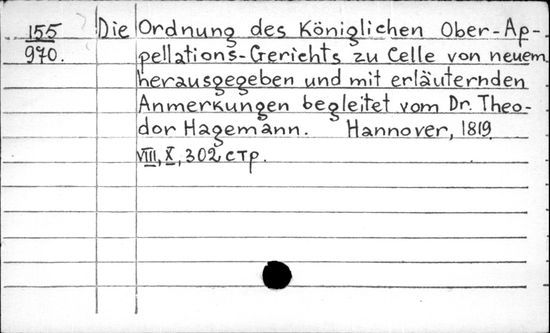 155 Die Ordnung des Königlichen Ober-Ap-
970. pellations-Gerichts zu Celle von neuem
herausgegeben und mit erläuternden
Anmerkungen begleitet vom Dr. Theo-
dor Hagemann. Hannover, 1819
VIII, X, 302 стр.